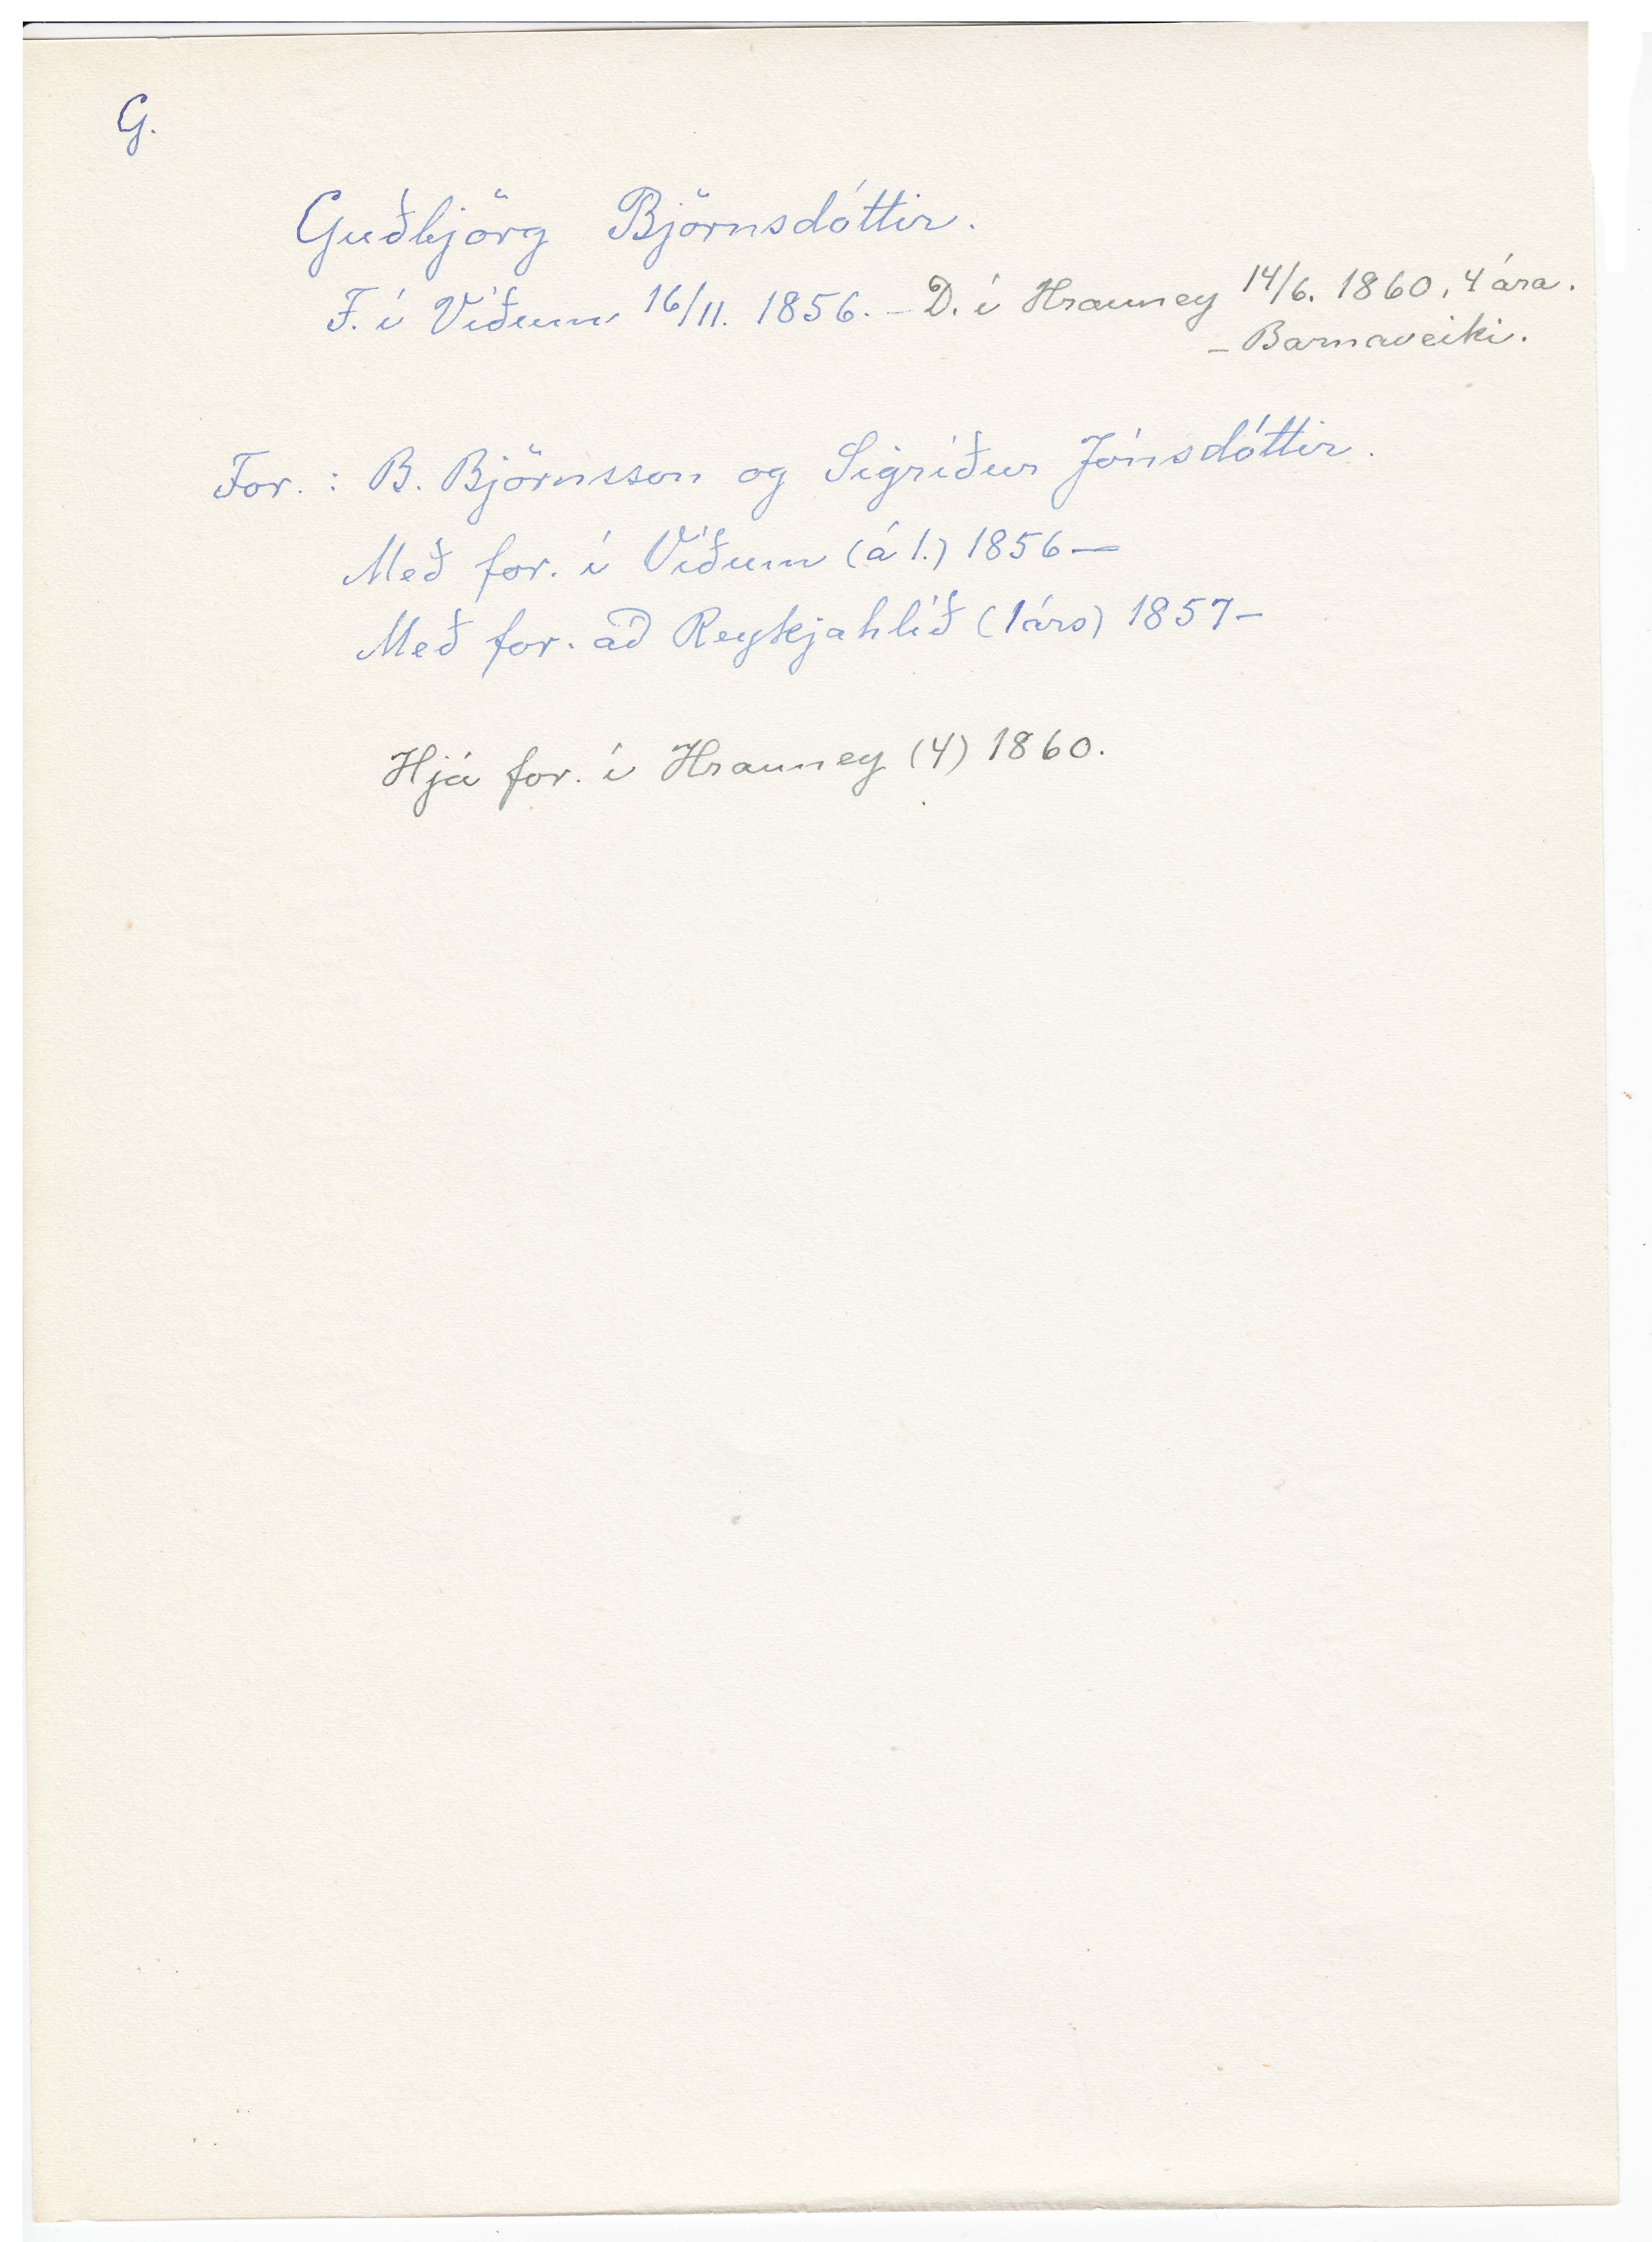 G.
Guðbjörg Björnsdóttir.
F. í Víðum 16/11. 1856. – D. í Hrauney 14/6. 1860, 4 ára.
– Barnaveiki.
For. : B. Björnsson og Sigríður Jónsdóttir.
Með for. í Víðum (á 1.) 1856 –
Með for. að Reykjahlíð (1 árs) 1857 –
Hjá for. í Hrauney (4) 1860.